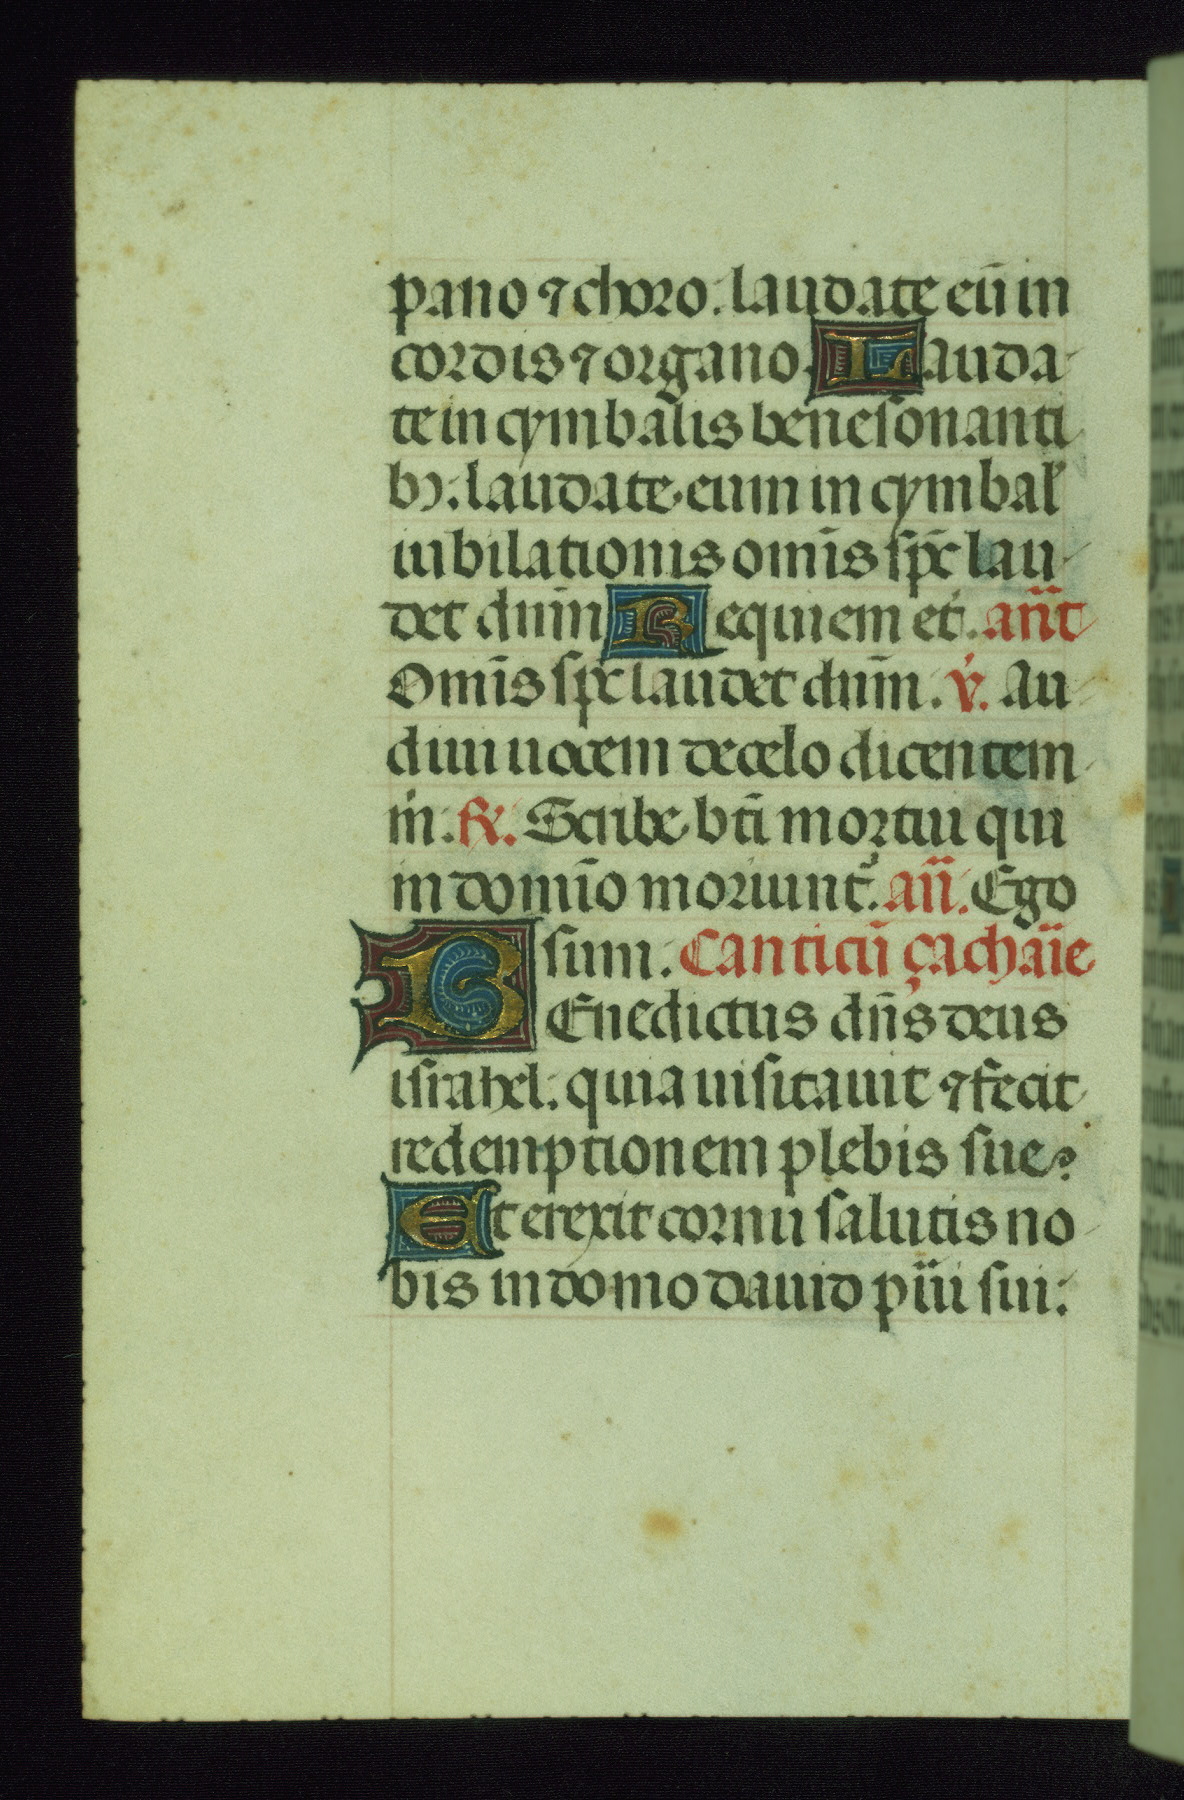 pano ⁊ choro: laudate eū in
cordis ⁊ organo. Lauda
te in cymbālis benesonanti
bꝫ: laudate eum in cymbal̕
iubilationis omīs sp̄c lau
det dnīm Requiem et̕. ant̄
Omīs sp̄c laudet dnīm. v̕. Au
diui uocem de celo dicentem
m̕. R̕. Scribe bt̄i mortui qui
in domīo moriunt̕. añ. Ego
sum: Canticū çachar̄ie
BEnedictus dn̄s deus
israhel: quia uisitauit ⁊ fecit
redemptionem plebis sue.
Et erexit cornu salutis no
bis in domo dauid p̄ui sui: